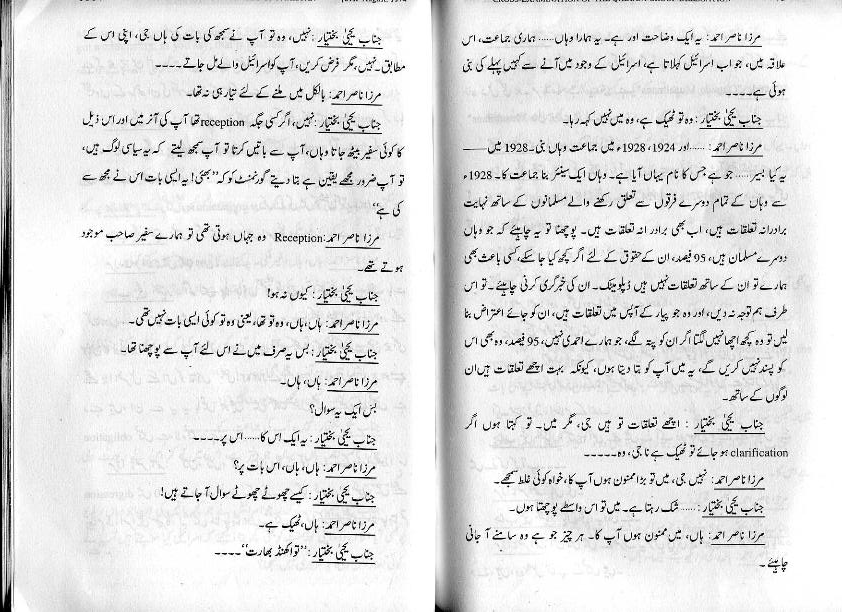 CROSS-EXAMINATION OF THE QADIANI GROUP DELEGATION
مرزا ناصر احمد: یہ ایک وضاحت اور ہے۔ یہ ہمارا وہاں...... ہماری جماعت، اس
علاقہ میں، جو اب اسرائیل کہلاتا ہے، اسرائیل کے وجود میں آنے سے کہیں پہلے کی بنی
ہوئی ہے۔۔۔۔
جناب یحییٰ بختیار: وہ تو ٹھیک ہے، وہ میں نہیں کہہ رہا۔
مرزا ناصر احمد: ......اور 1924، 1928ء میں جماعت وہاں بنی۔ 1928 میں
یہ کیا بسیر...... جو ہے جس کا نام یہاں آیا ہے۔ وہاں ایک سینٹر بنا جماعت کا۔ 1928ء
سے وہاں کے تمام دوسرے فرقوں سے تعلق رکھنے والے مسلمانوں کے ساتھ نہایت
برادرانہ تعلقات ہیں، اب بھی برادرانہ تعلقات ہیں۔ پوچھنا تو یہ چاہیئے کہ جو وہاں
دوسرے مسلمان ہیں، 95 فیصد، ان کے حقوق کے لئے اگر کچھ کیا جا سکے، کسی باعث بھی
ہمارے تو ان کے ساتھ تعلقات نہیں ہیں ڈپلومیٹک۔ ان کی خبرگیری کرنی چاہیئے۔ تو اس
طرف ہم توجہ نہ دیں، اور وہ جو پیار کے آپس میں تعلقات ہیں، ان کو جائے اعتراض بنا
لیں تو وہ کچھ اچھا نہیں لگتا اگر ان کو پتہ لگے، جو ہمارے احمدی نہیں، 95 فیصد، وہ بھی اس
کو پسند نہیں کریں گے، یہ میں آپ کو بتا دیتا ہوں، کیونکہ بہت اچھے تعلقات ہیں ان
لوگوں کے ساتھ۔
جناب یحییٰ بختیار: اچھے تعلقات تو ہیں جی، مگر میں۔ تو کہتا ہوں اگر
clarification ہو جائے تو ٹھیک ہے نا جی، وہ۔۔۔۔۔
مرزا ناصر احمد: نہیں جی، میں تو بڑا ممنون ہوں آپ کا، خواہ کوئی غلط سمجھے۔
جناب یحییٰ بختیار: ...... شک رہتا ہے۔ میں تو اس واسطے پوچھتا ہوں۔
مرزا ناصر احمد: ہاں، میں ممنون ہوں آپ کا۔ ہر چیز جو ہے وہ سامنے آ جانی
چاہیئے۔
جناب یحییٰ بختیار: نہیں، وہ تو آپ نے سمجھ کی بات کی ہاں جی، اپنی اس کے
مطابق۔ نہیں، مگر فرض کریں، آپ کو اسرائیل والے مل جاتے۔۔۔۔
مرزا ناصر احمد: بالکل میں ملنے کے لئے تیار ہی نہ تھا۔
جناب یحییٰ بختیار: نہیں، اگر کسی جگہ reception تھا آپ کی آنر میں اور اس ذیل
کا کوئی سفیر بیٹھ جاتا وہاں، آپ سے باتیں کرتا تو آپ سمجھ لیتے کہ یہ سیاسی لوگ ہیں،
تو آپ ضرور مجھے یقین ہے بتا دیتے گورنمنٹ کو کہ "بھئی! یہ ایسی بات اس نے مجھ سے
کی ہے"
مرزا ناصر احمد: Reception وہ جہاں ہوتی تھی تو ہمارے سفیر صاحب موجود
ہوتے تھے۔
جناب یحییٰ بختیار: کیوں نہ ہو!
مرزا ناصر احمد: ہاں، ہاں، وہ تو تھا، یعنی وہ تو کوئی ایسی بات نہیں تھی۔
جناب یحییٰ بختیار: بس یہ صرف میں نے اس لئے آپ سے پوچھنا تھا۔
مرزا ناصر احمد: ہاں، ہاں۔
بس ایک یہ سوال؟
جناب یحییٰ بختیار: یہ ایک اس کا...... اس پر۔۔۔۔
مرزا ناصر احمد: ہاں، ہاں، اس بات پر؟
جناب یحییٰ بختیار: کیسے چھوٹے چھوٹے سوال آ جاتے ہیں!
مرزا ناصر احمد: ہاں، ٹھیک ہے۔
جناب یحییٰ بختیار: "تو اکھنڈ بھارت"۔۔۔۔